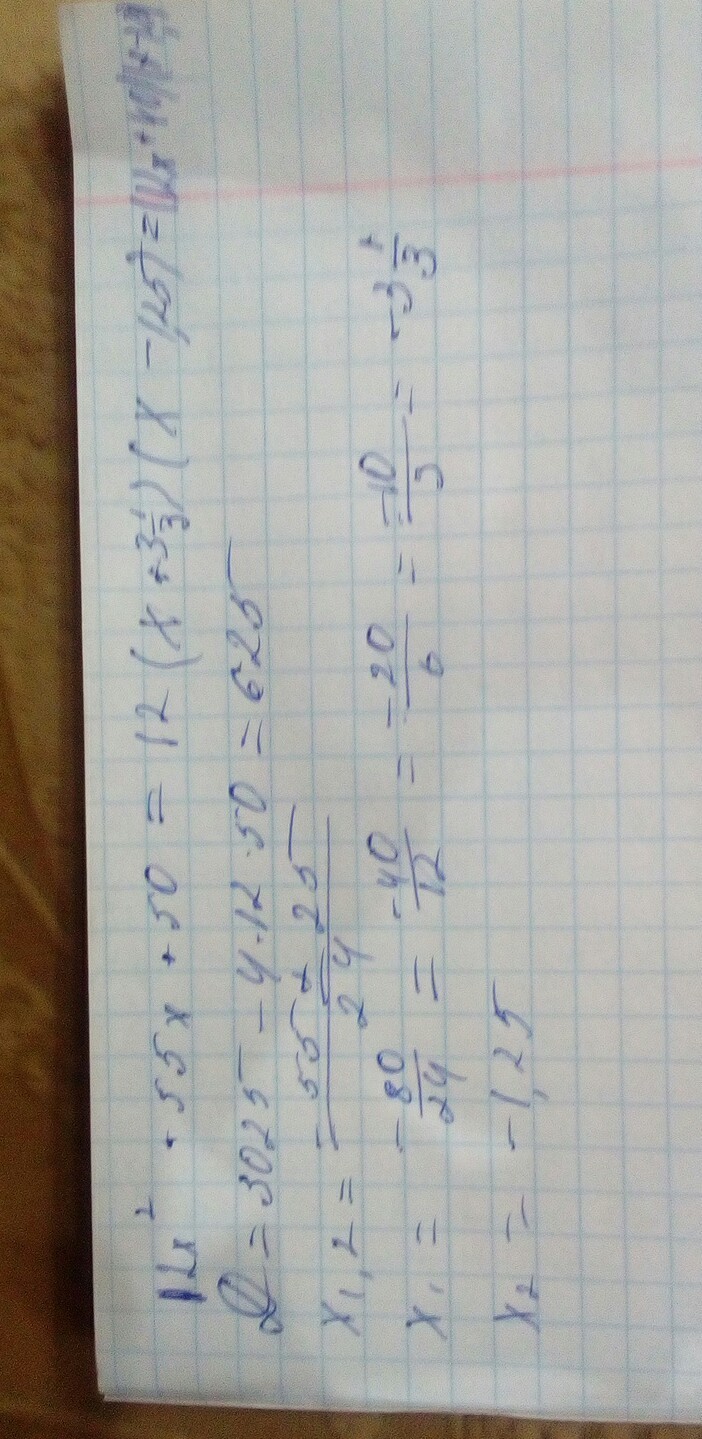 12x² + 55x + 50 = 12 (x + 3 1/3) (x - 1,25) = (12x + 40)
D = 3025 - 4·12·50 = 625
x1,2 = -55 ± 25 / 24
x1 = -80/24 = -40/12 = -20/6 = -10/3 = -3 1/3
x2 = -1,25